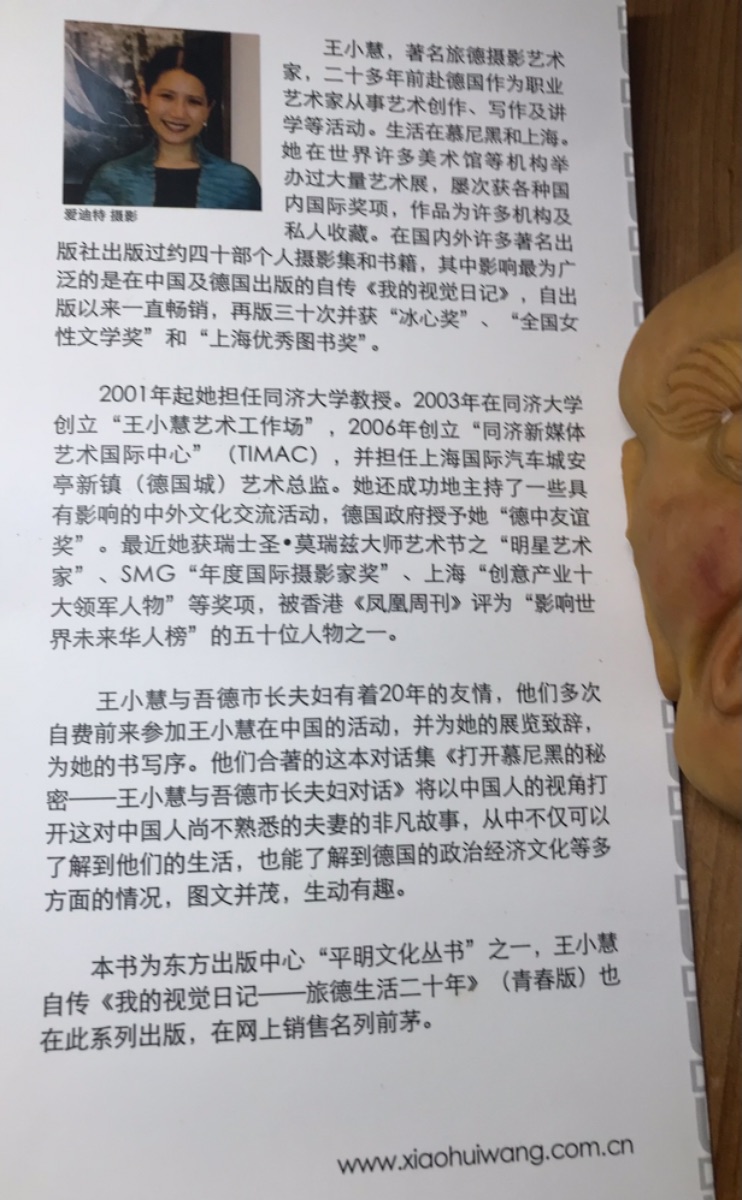 王小慧，著名旅德摄影艺术
家，二十多年前赴德国作为职业
艺术家从事艺术创作、写作及讲
学等活动。生活在慕尼黑和上海。
她在世界许多美术馆等机构举
办过大量艺术展，屡次获各种国
内国际奖项，作品为许多机构及
私人收藏。在国内外许多著名出
爱迪特 摄影
版社出版过约四十部个人摄影集和书籍，其中影响最为广
泛的是在中国及德国出版的自传《我的视觉日记》，自出
版以来一直畅销，再版三十次并获“冰心奖”、“全国女
性文学奖”和“上海优秀图书奖”。
2001年起她担任同济大学教授。2003年在同济大学
创立“王小慧艺术工作场”，2006年创立“同济新媒体
艺术国际中心”（TIMAC），并担任上海国际汽车城安
亭新镇（德国城）艺术总监。她还成功地主持了一些具
有影响的中外文化交流活动，德国政府授予她“德中友谊
奖”。最近她获瑞士圣•莫瑞兹大师艺术节之“明星艺术
家”、SMG“年度国际摄影家奖”、上海“创意产业十
大领军人物”等奖项，被香港《凤凰周刊》评为“影响世
界未来华人榜”的五十位人物之一。
王小慧与吾德市长夫妇有着20年的友情，他们多次
自费前来参加王小慧在中国的活动，并为她的展览致辞，
为她的书写序。他们合著的这本对话集《打开慕尼黑的秘
密——王小慧与吾德市长夫妇对话》将以中国人的视角打
开这对中国人尚不熟悉的夫妻的非凡故事，从中不仅可以
了解到他们的生活，也能了解到德国的政治经济文化等多
方面的情况，图文并茂，生动有趣。
本书为东方出版中心“平明文化丛书”之一，王小慧
自传《我的视觉日记——旅德生活二十年》（青春版）也
在此系列出版，在网上销售名列前茅。
www.xiaohuiwang.com.cn